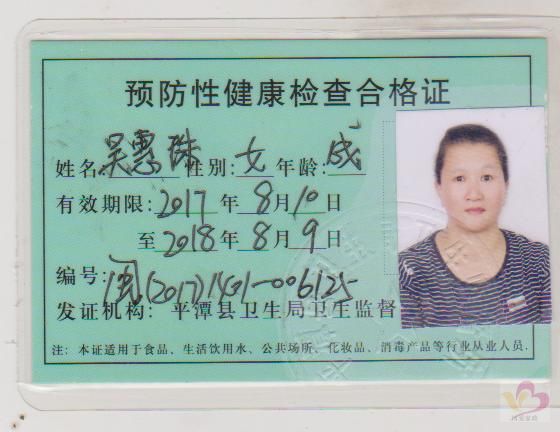 预防性健康检查合格证
姓名 吴惠珠 性别: 女 年龄: 成
有效期限: 2017 年 8 月 10 日
至 2018 年 8 月 9 日
编号: 闽(2017)1501-006125
发证机构: 平潭县卫生局卫生监督
注: 本证适用于食品、生活饮用水、公共场所、化妆品、消毒产品等行业从业人员.